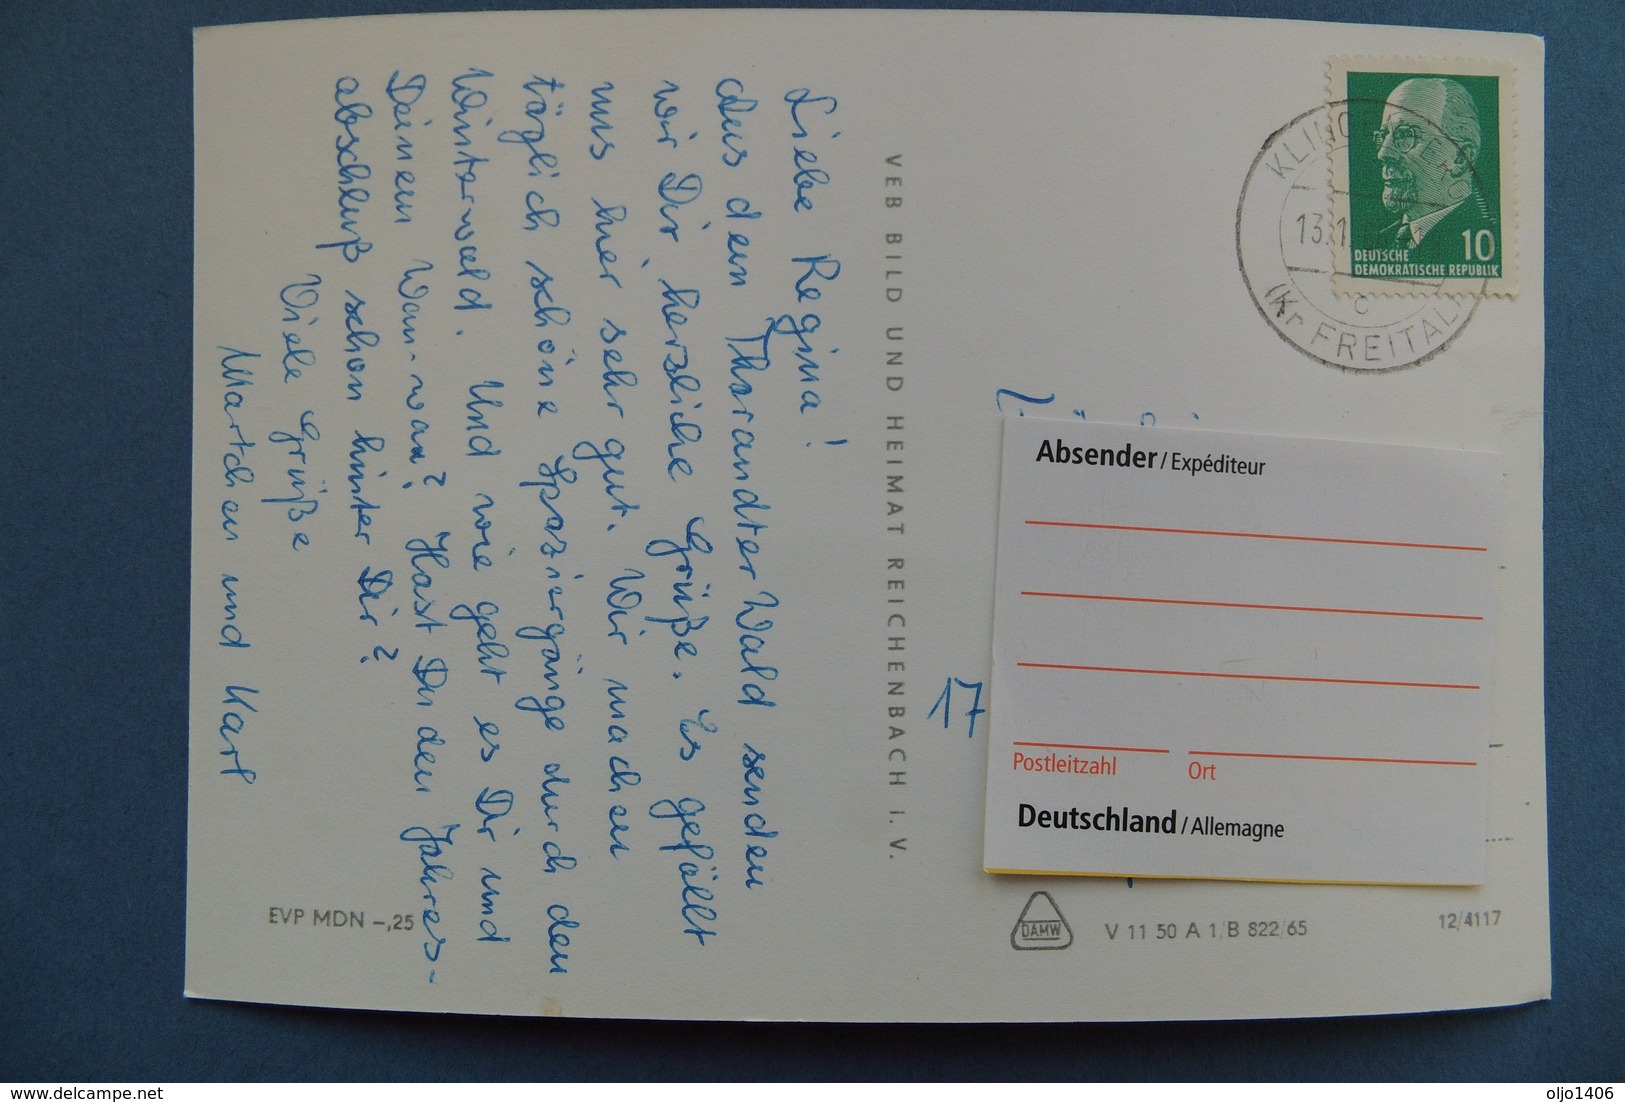 Liebe Regina!
Aus dem Tharandter Wald senden
wir Dir herzliche Grüße. Es gefällt
uns hier sehr gut. Wir machen
täglich schöne Spaziergänge durch den
Winterwald. Und wie geht es Dir und
Deinem Wau-wau? Hast Du den Jahres-
abschluß schon hinter Dir?
Viele Grüße
Martchen und Karl
EVP MDN –,25
VEB BILD UND HEIMAT REICHENBACH I. V.
10
DEUTSCHE
DEMOKRATISCHE REPUBLIK
(Kr FREITAL)
17
Absender / Expéditeur
Postleitzahl Ort
Deutschland / Allemagne
DAMW
V 11 50 A 1/B 822/65
12/4117
delcampe.net
oljo1406